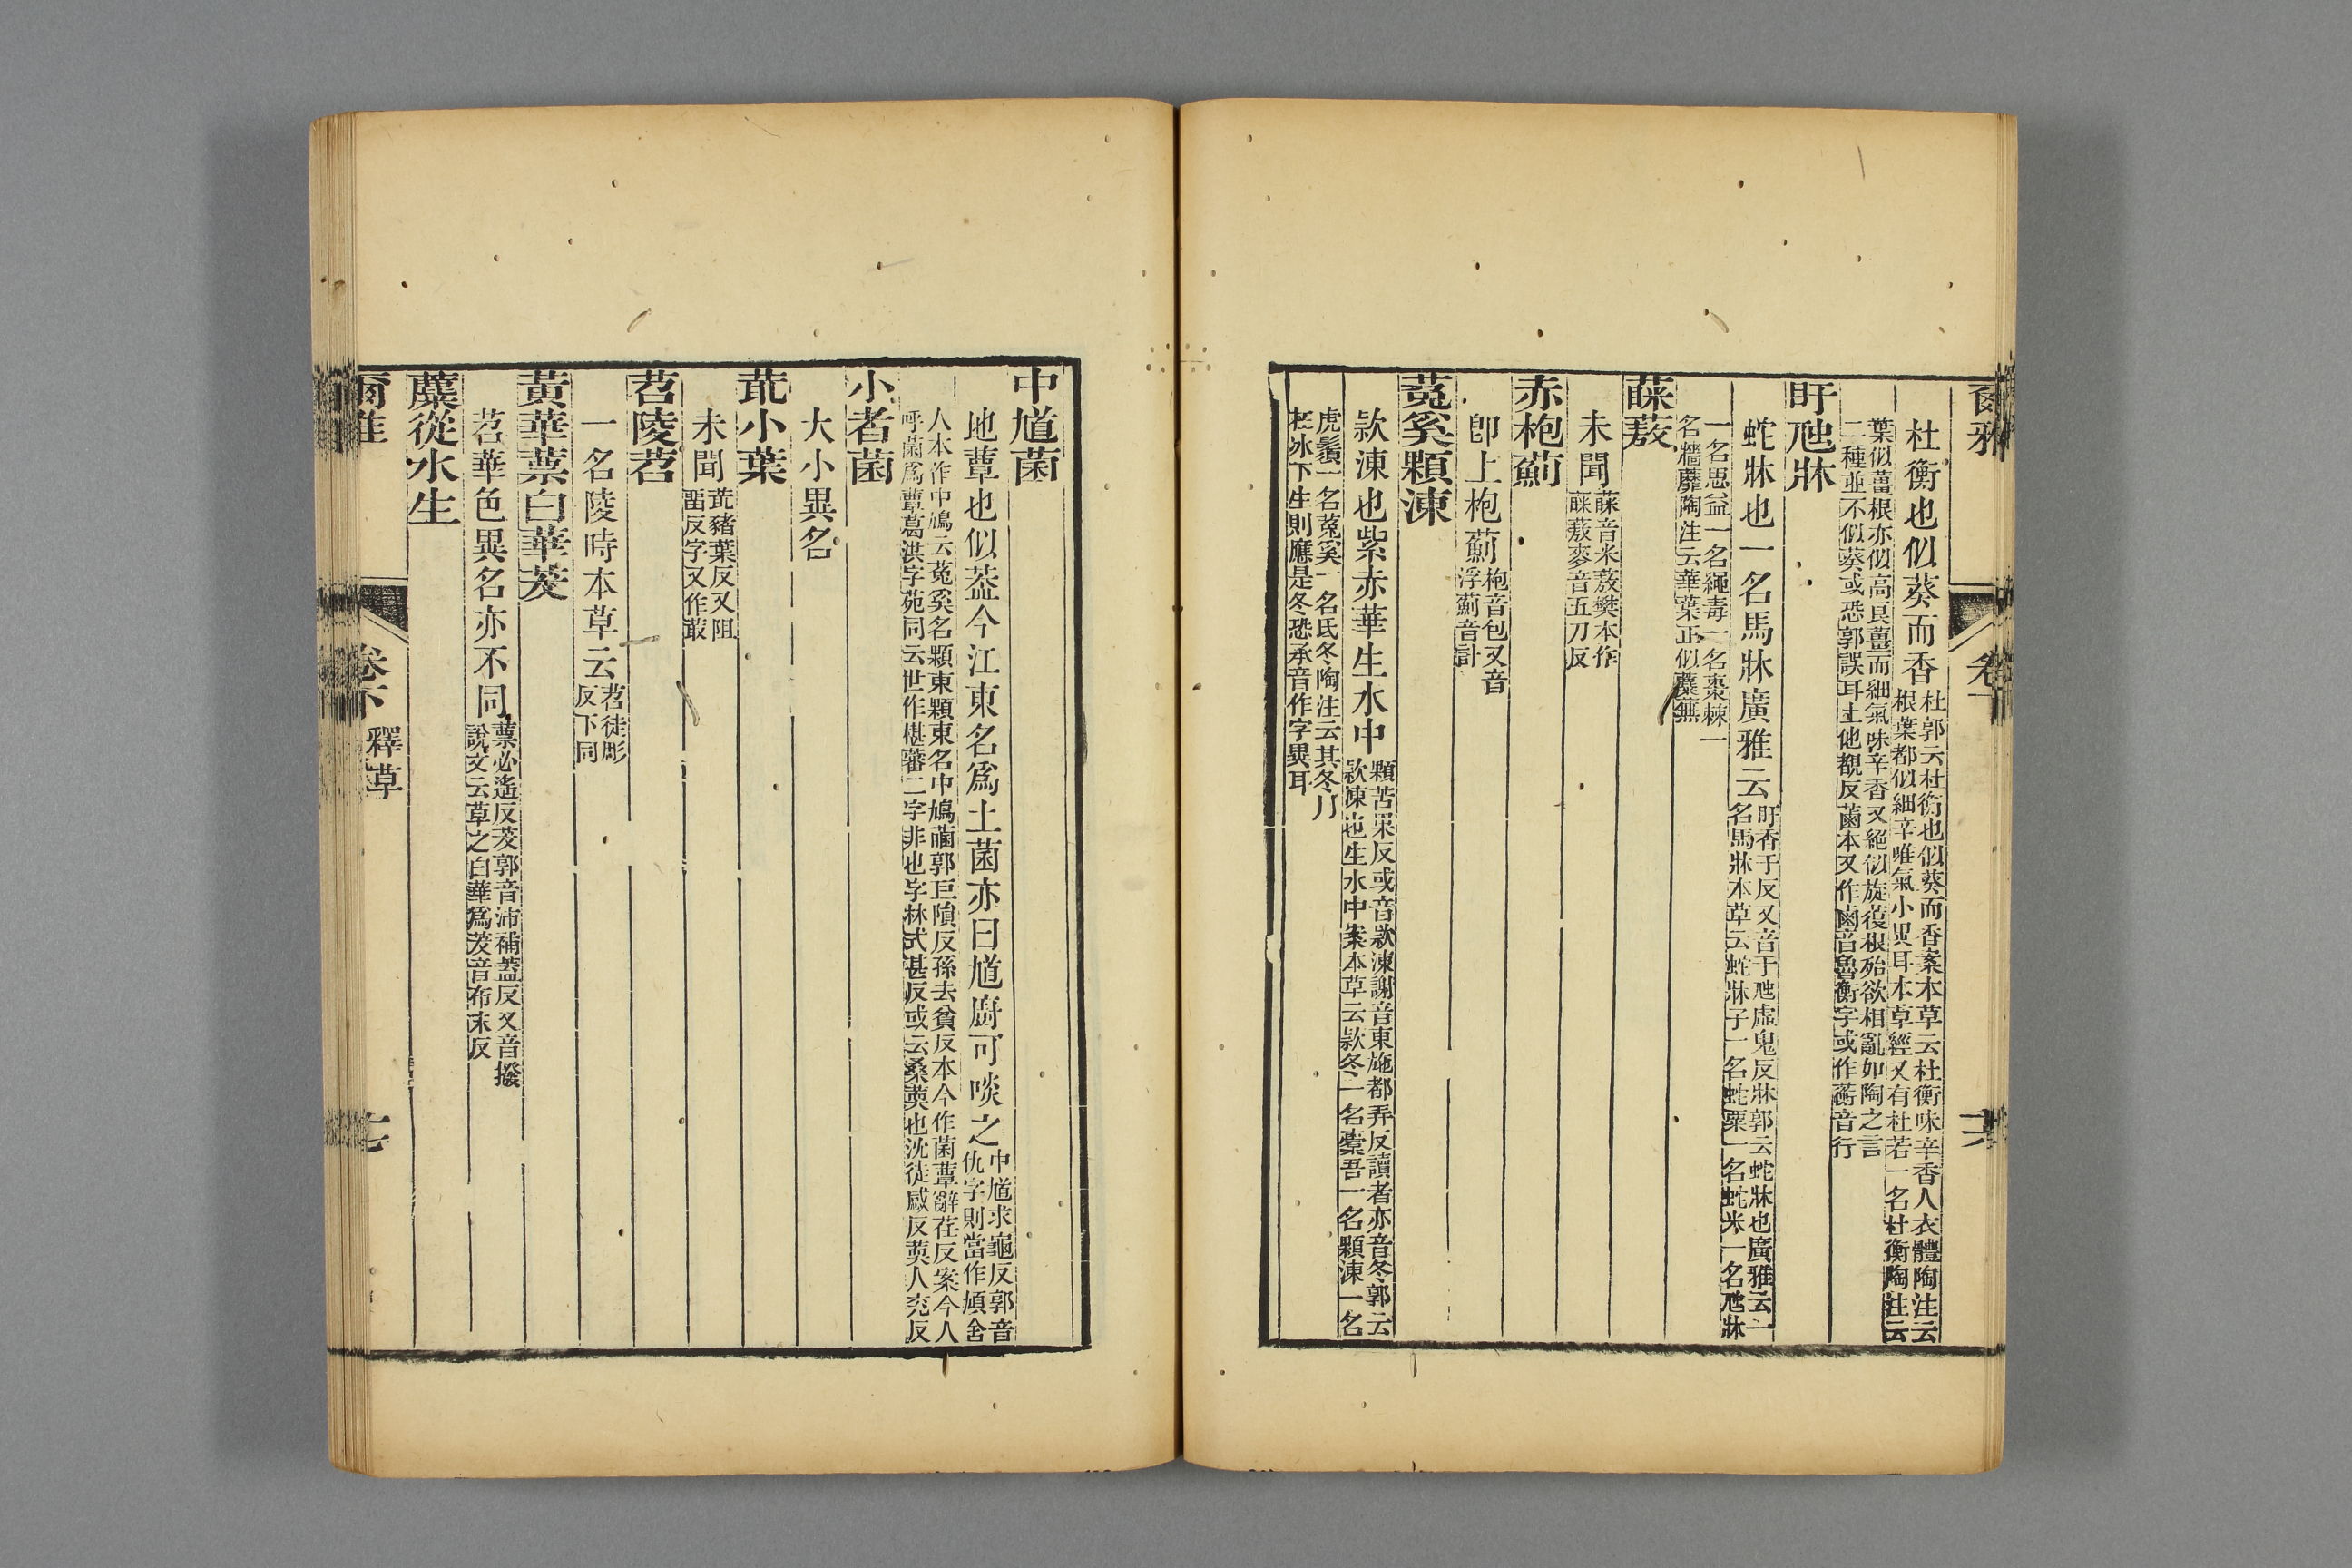 杜衡也似葵而香杜郭云杜衡也似葵而香案本草云杜衡味辛香人衣體陶注云
根葉都似細辛唯氣小異耳本草經又有杜若一名杜衡陶注云
葉似薑根亦似高良薑而細氣味辛香又絕似旋葍根殆欲相亂如陶之言
二種並不似葵或恐郭誤耳土他覩反薗本又作鹵音魯衡字或作蘅音行
盱虺牀
蛇牀也一名馬牀廣雅云盱香于反又音于虺虛鬼反牀郭云蛇牀也廣雅云一
名馬牀本草云蛇牀子一名蛇粟一名蛇米一名虺牀
一名思益一名繩毒一名棗棘一
名牆蘼陶注云華葉正似蘪蕪
蔝蔜
未聞蔝音米蔜樊本作
蔝蔜麥音五刀反
赤枹薊
卽上枹薊枹音包又音
浮薊音計
菟奚顆涷
款涷也紫赤華生水中顆苦果反或音款涷謝音東施都弄反讀者亦音冬郭云
款凍也生水中案本草云款冬一名橐吾一名顆涷一名
虎鬚一名菟奚一名氐冬陶注云其冬月
在冰下生則應是冬恐承音作字異耳
中馗菌
地蕈也似葢今江東名爲土菌亦曰馗廚可啖之中馗求龜反郭音
仇字則當作頄舍
人本作中鳩云菟奚名顆東顆東名中鳩菌郭巨隕反孫去貧反本今作菌蕈辭荏反案今人
呼菌爲蕈葛洪字苑同云世作椹䕭二字非也字林式甚反或云桑萸也沈徒感反萸人兖反
小者菌
大小異名
菆小葉
未聞菆豬葉反又阻
留反字又作菆
苕陵苕
一名陵時本草云苕徒彫
反下同
黃華蔈白華茇
苕華色異名亦不同蔈必遙反茇郭音沛補葢反又音撥
說文云草之白華爲茇音布末反
蘪從水生
爾雅 卷下 釋草